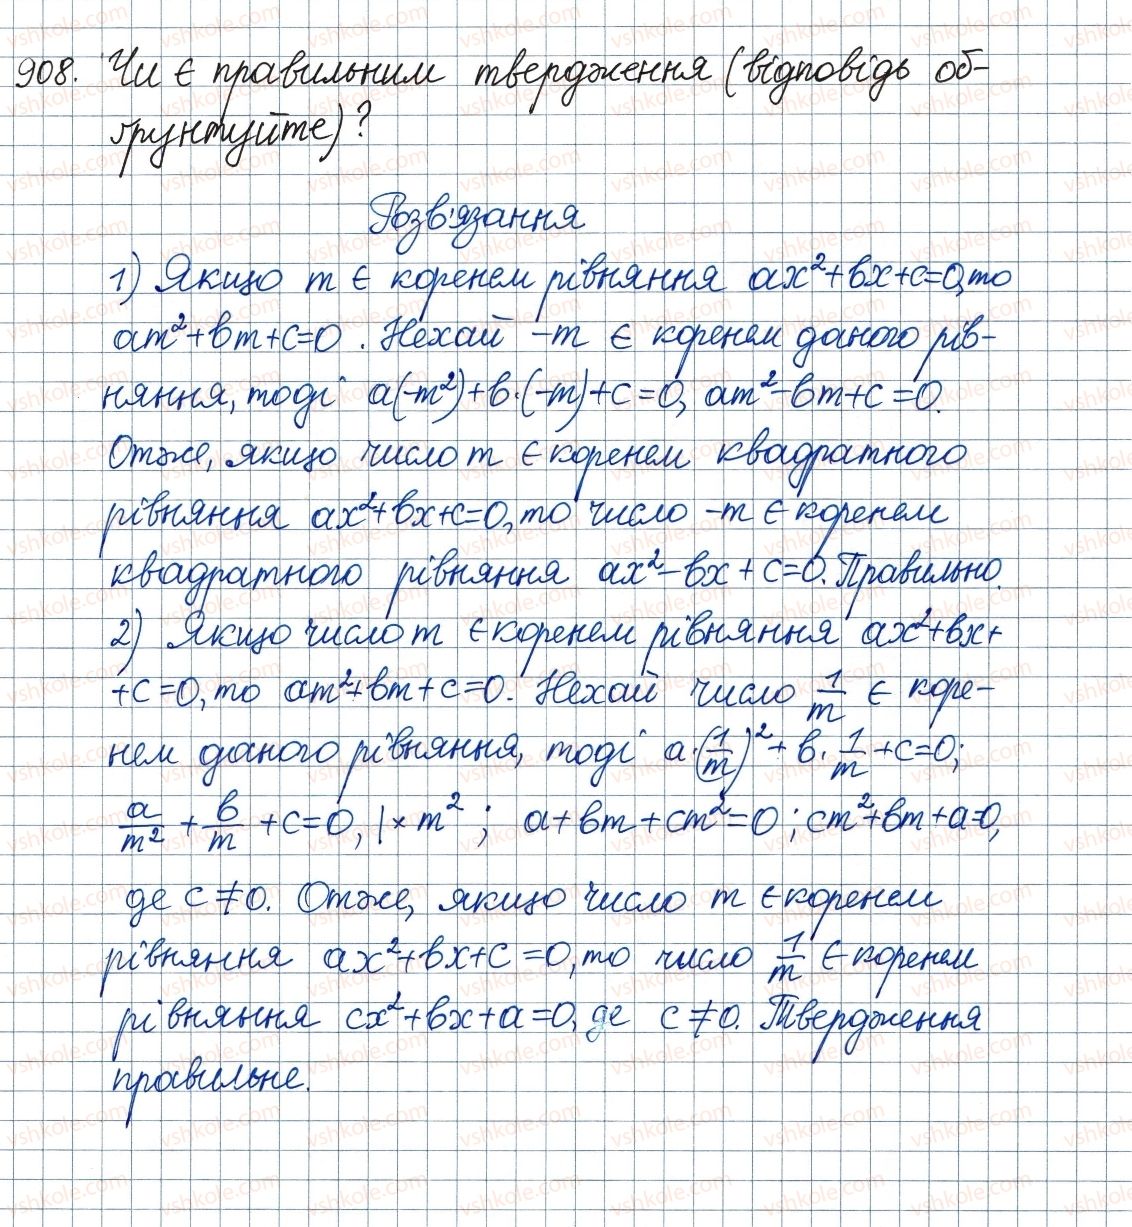 908. Чи є правильним твердження (відповідь об-
ґрунтуйте)?
Розв'язання
1) Якщо m є коренем рівняння ax²+bx+c=0, то
am²+bm+c=0. Нехай -m є коренем даного рів-
няння, тоді a(-m²)+b·(-m)+c=0, am²-bm+c=0.
Отже, якщо число m є коренем квадратного
рівняння ax²+bx+c=0, то число -m є коренем
квадратного рівняння ax²-bx+c=0. Правильно.
2) Якщо число m є коренем рівняння ax²+bx+
+c=0, то am²+bm+c=0. Нехай число 1/m є коре-
нем даного рівняння, тоді a·(1/m)²+b·1/m+c=0;
a/m²+b/m+c=0, |×m²; a+bm+cm²=0; cm²+bm+a=0,
де c≠0. Отже, якщо число m є коренем
рівняння ax²+bx+c=0, то число 1/m є коренем
рівняння cx²+bx+a=0, де c≠0. Твердження
правильне.